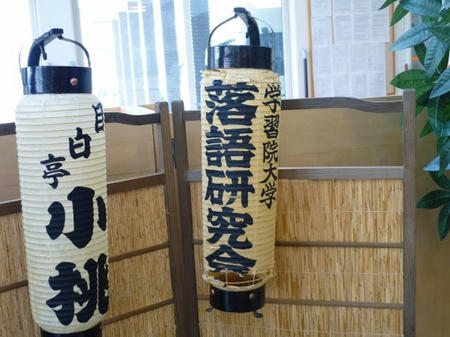 学習院大学
落語研究会
目白亭
小桃